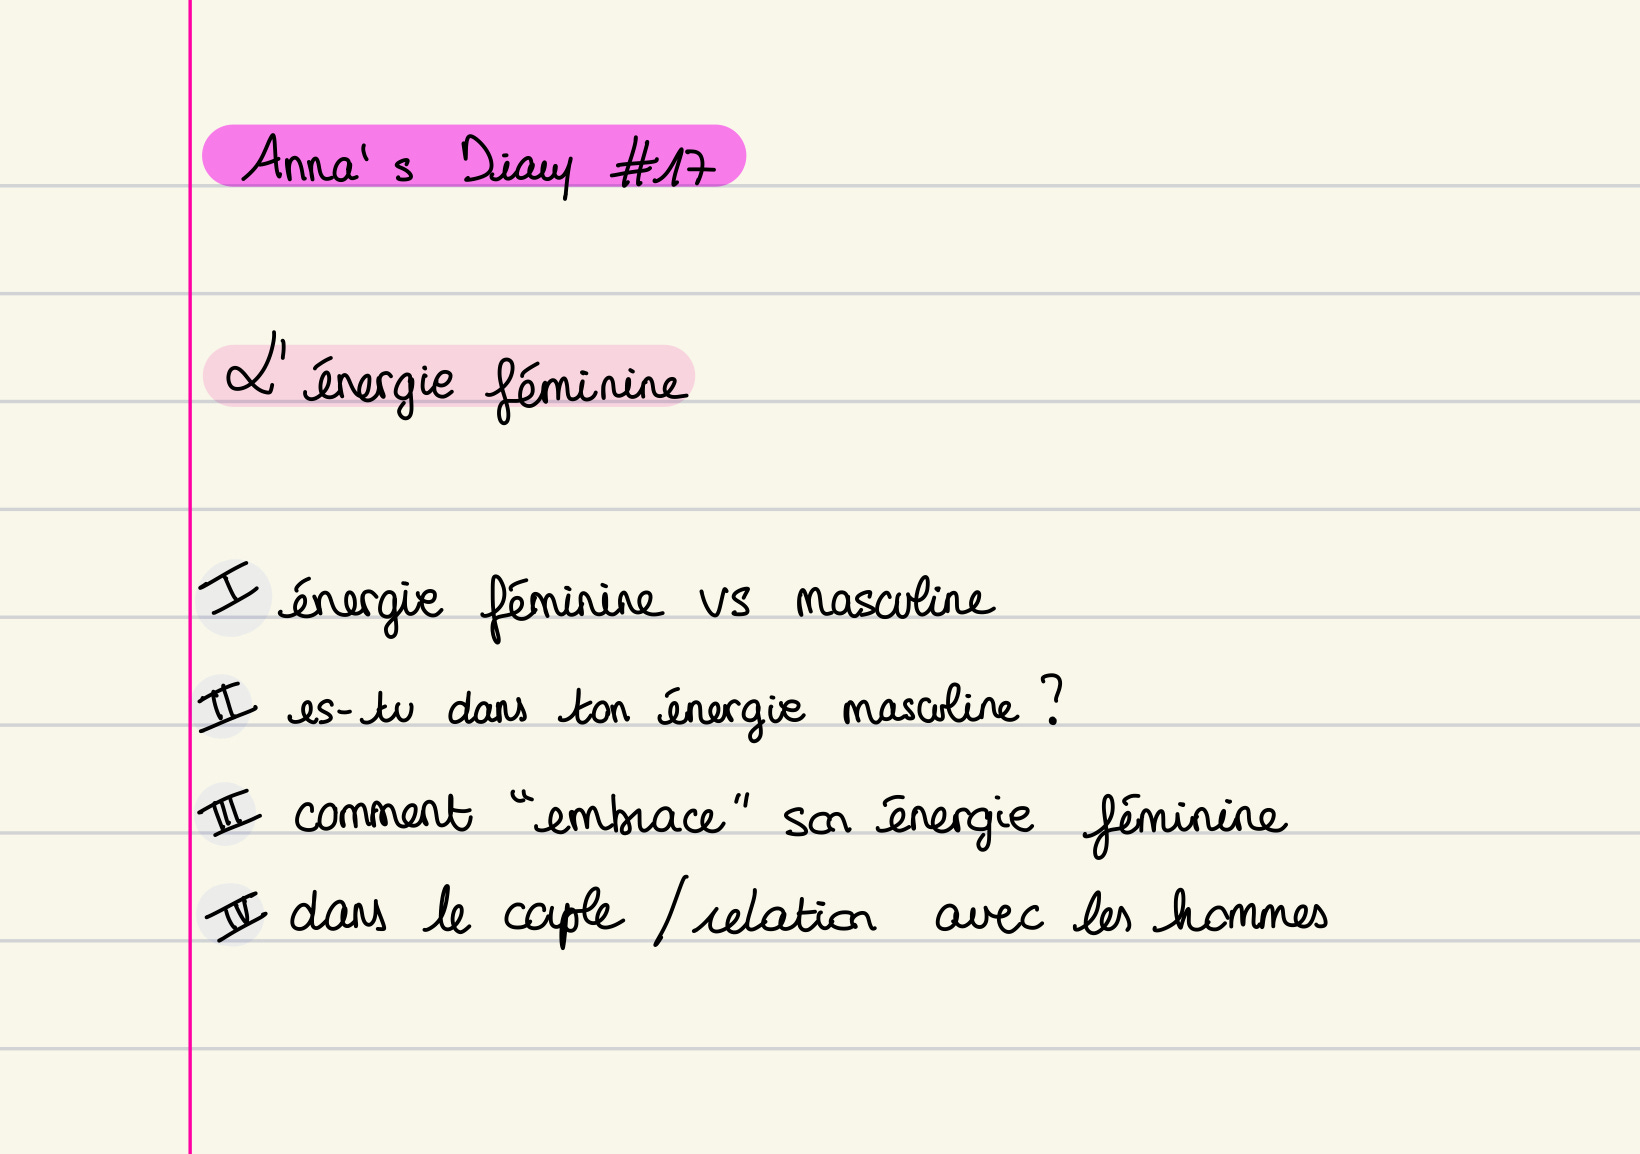 Anna's Diary #17
L'énergie féminine
I énergie féminine vs masculine
II es-tu dans ton énergie masculine ?
III comment "embrace" son énergie féminine
IV dans le couple / relation avec les hommes